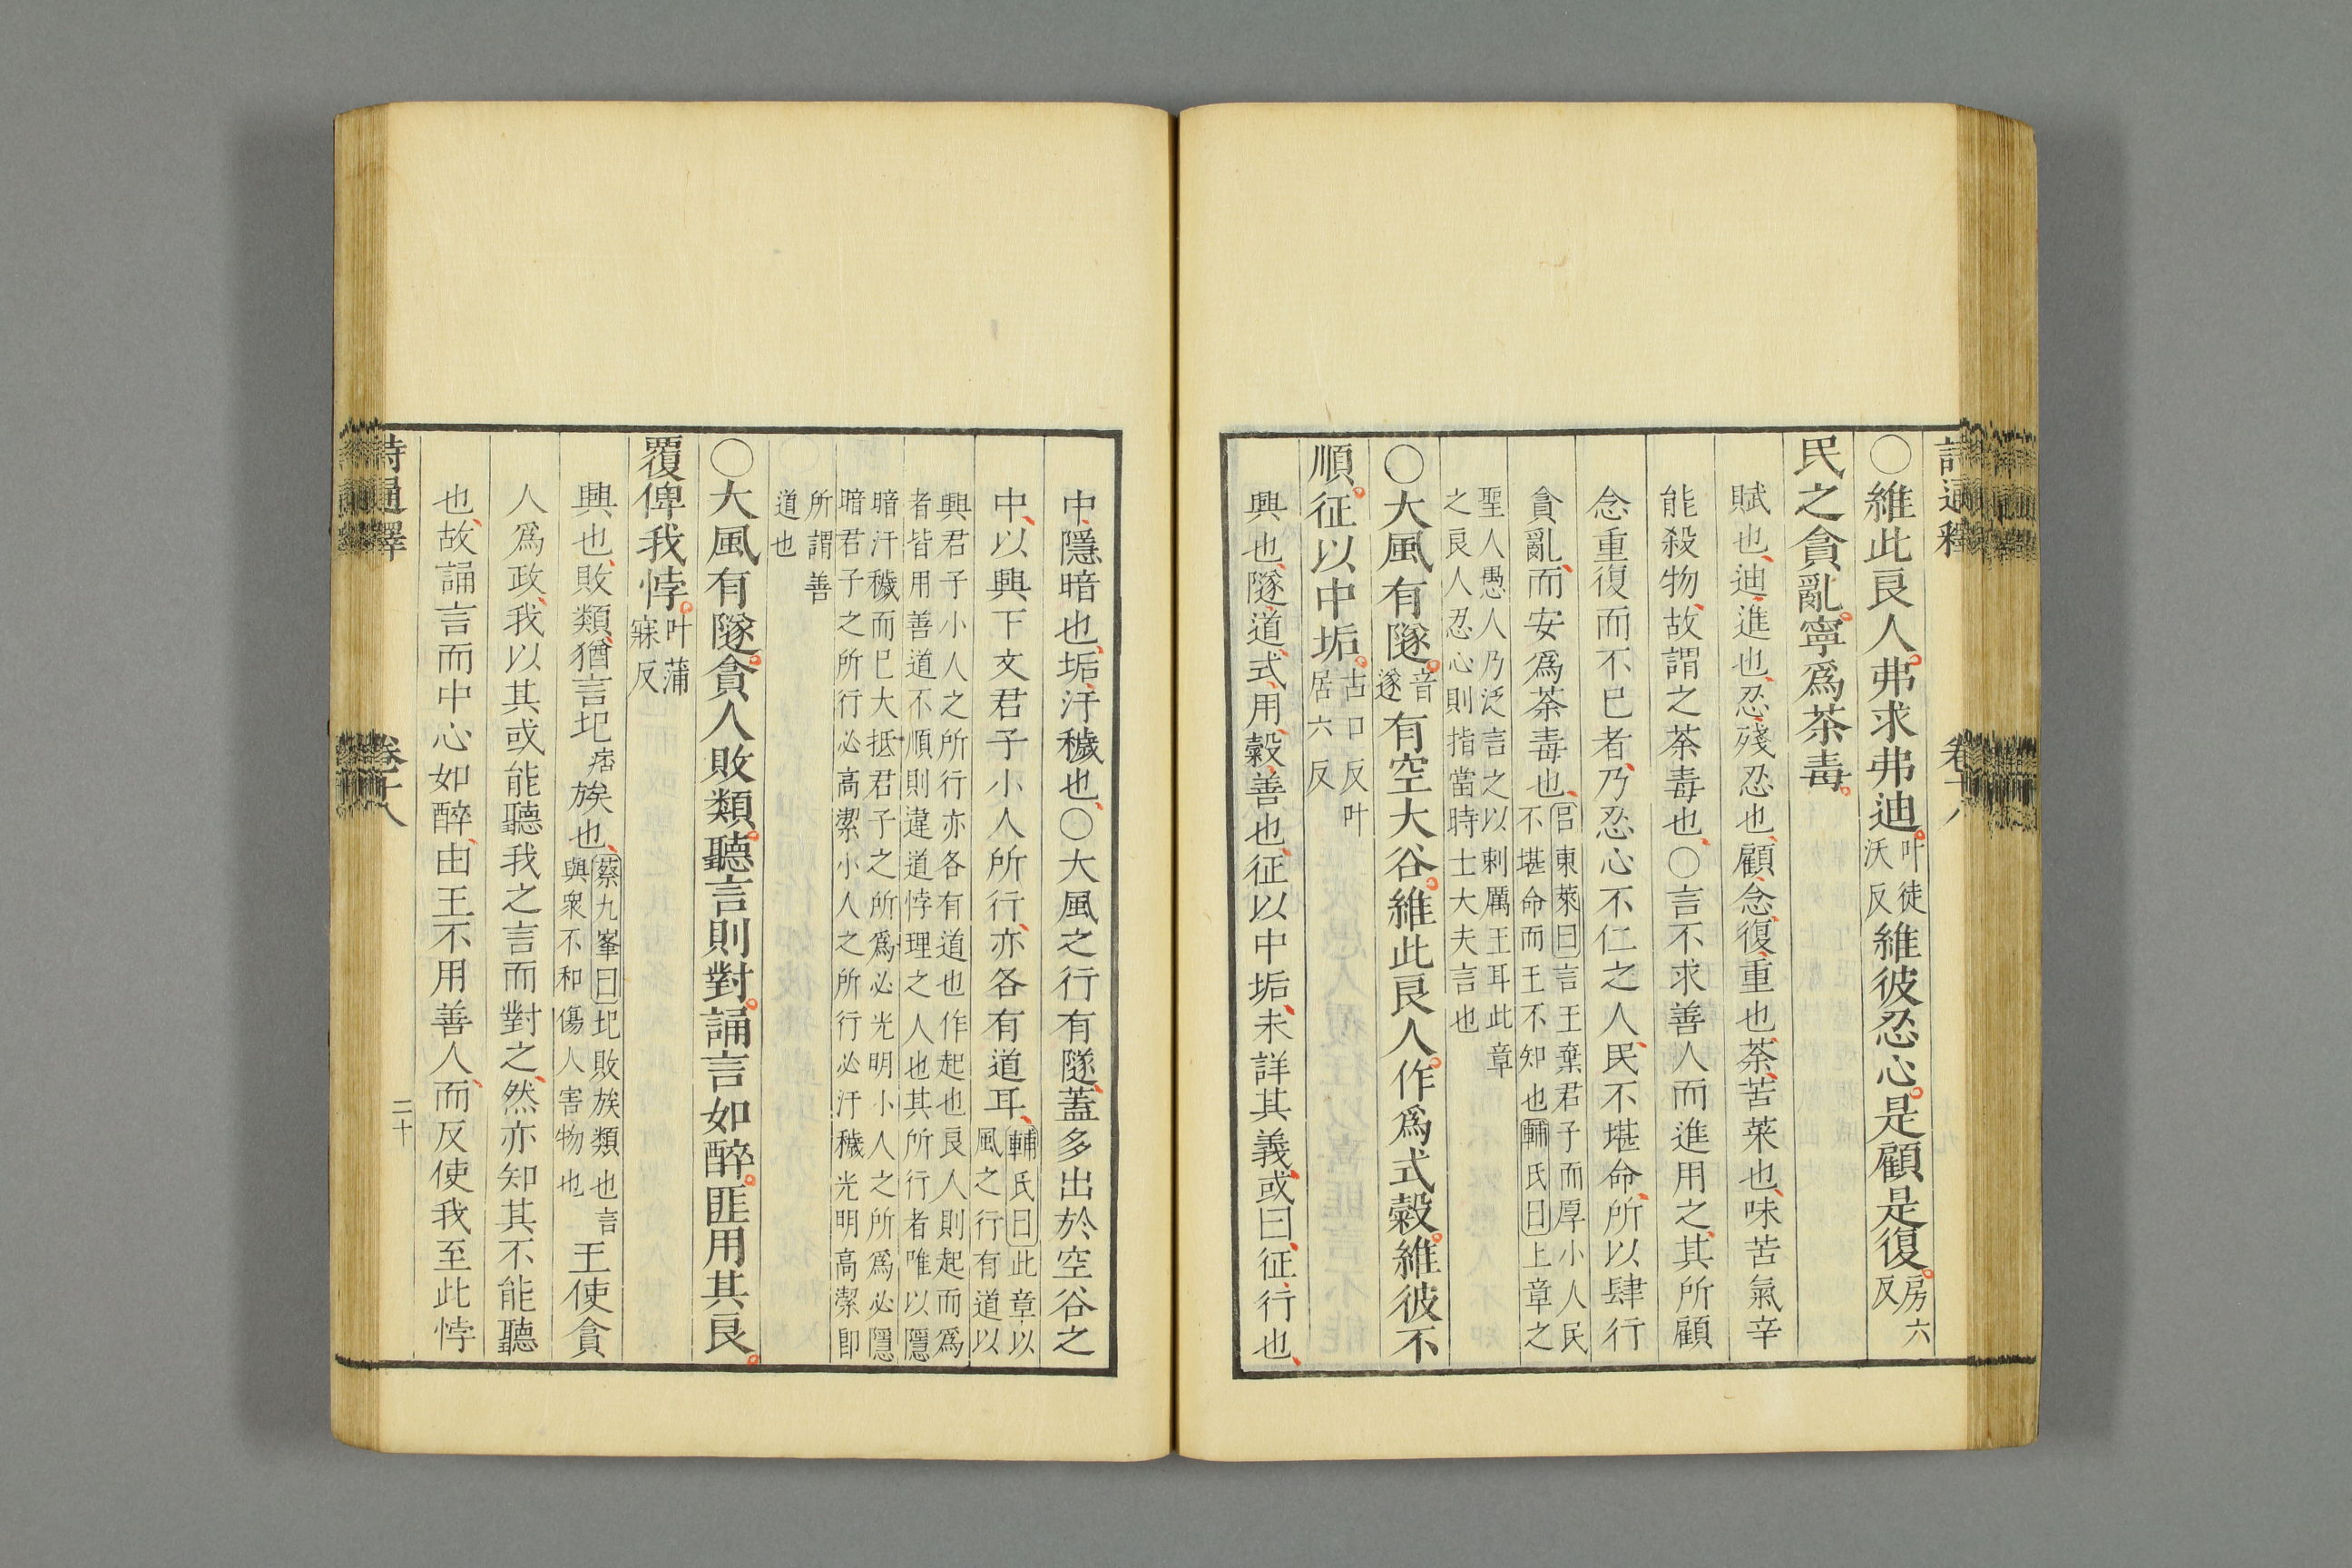 詩通釋 卷十八
○維此良人。弗求弗迪。叶徒沃反維彼忍心。是顧是復。房六反
民之貪亂。寧爲荼毒。
賦也、迪、進也、忍、殘忍也、顧、念、復、重也、荼、苦菜也、味苦氣辛
能殺物、故謂之荼毒也、○言不求善人而進用之、其所顧
念重復而不已者、乃忍心不仁之人、民不堪命、所以肆行
貪亂、而安爲荼毒也、呂東萊曰言王棄君子而厚小人民
不堪命而王不知也輔氏曰上章之
聖人愚人乃泛言之以刺厲王耳此章
之良人忍心則指當時士大夫言也
○大風有隧。音遂有空大谷。維此良人。作爲式穀。維彼不
順。征以中垢。古口反叶居六反
興也、隧、道、式、用、穀、善也、征以中垢、未詳其義、或曰、征、行也、
中、隱暗也、垢、汙穢也、○大風之行有隧、蓋多出於空谷之
中、以興下文君子小人所行、亦各有道耳、輔氏曰此章以
風之行有道以
興君子小人之所行亦各有道也作起也良人則起而爲
者皆用善道不順則違道悖理之人也其所行者唯以隱
暗汙穢而已大抵君子之所爲必光明小人之所爲必隱
暗君子之所行必高潔小人之所行必汙穢光明高潔卽
所謂善
道也
○大風有隧。貪人敗類。聽言則對。誦言如醉。匪用其良。
覆俾我悖。叶蒲寐反
興也、敗類、猶言圮痞族也、蔡九峯曰圮敗族類也言
與衆不和傷人害物也王使貪
人爲政、我以其或能聽我之言而對之、然亦知其不能聽
也、故誦言而中心如醉、由王不用善人、而反使我至此悖
詩通釋 卷十八 二十